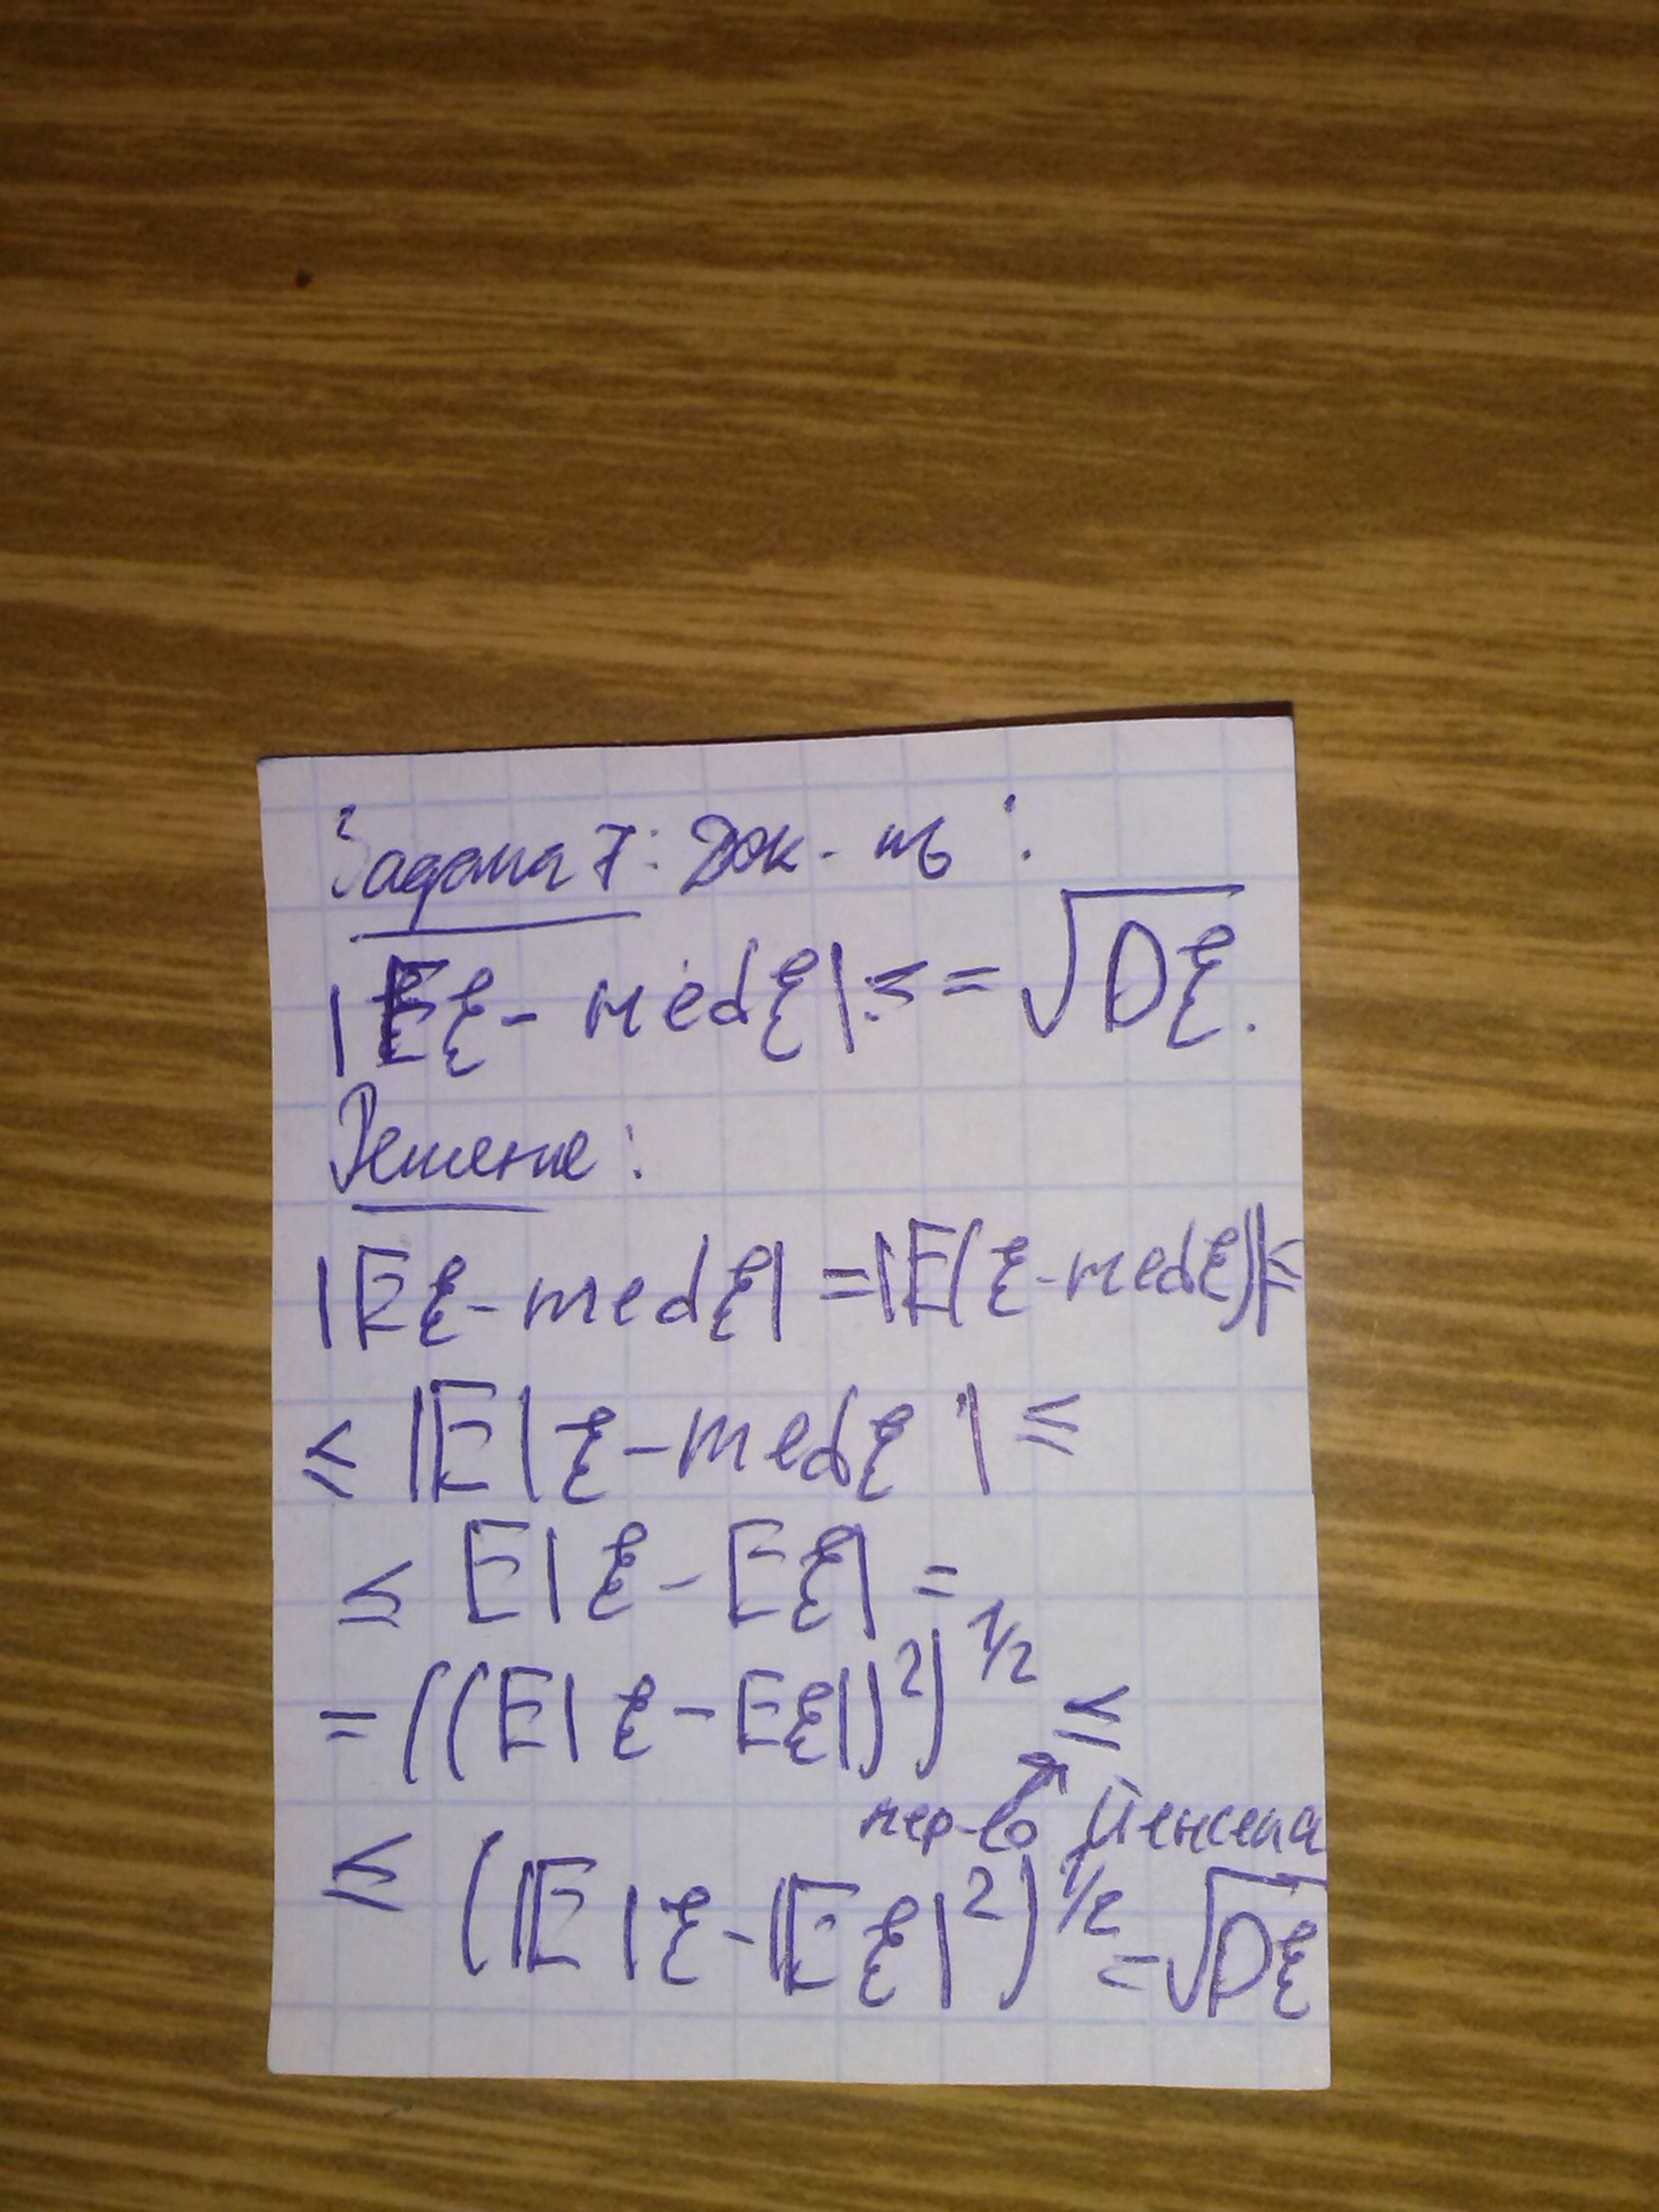 Задача 7: Док-ть:
|Eξ - medξ| ≤ = √Dξ.
Решение:
|Eξ - medξ| = |E(ξ - medξ)| ≤
≤ E|ξ - medξ| ≤
≤ E|ξ - Eξ| =
= ((E|ξ - Eξ|)²)^1/2 ≤
нер-во Йенсена
≤ (E|ξ - Eξ|²)^1/2 = √Dξ